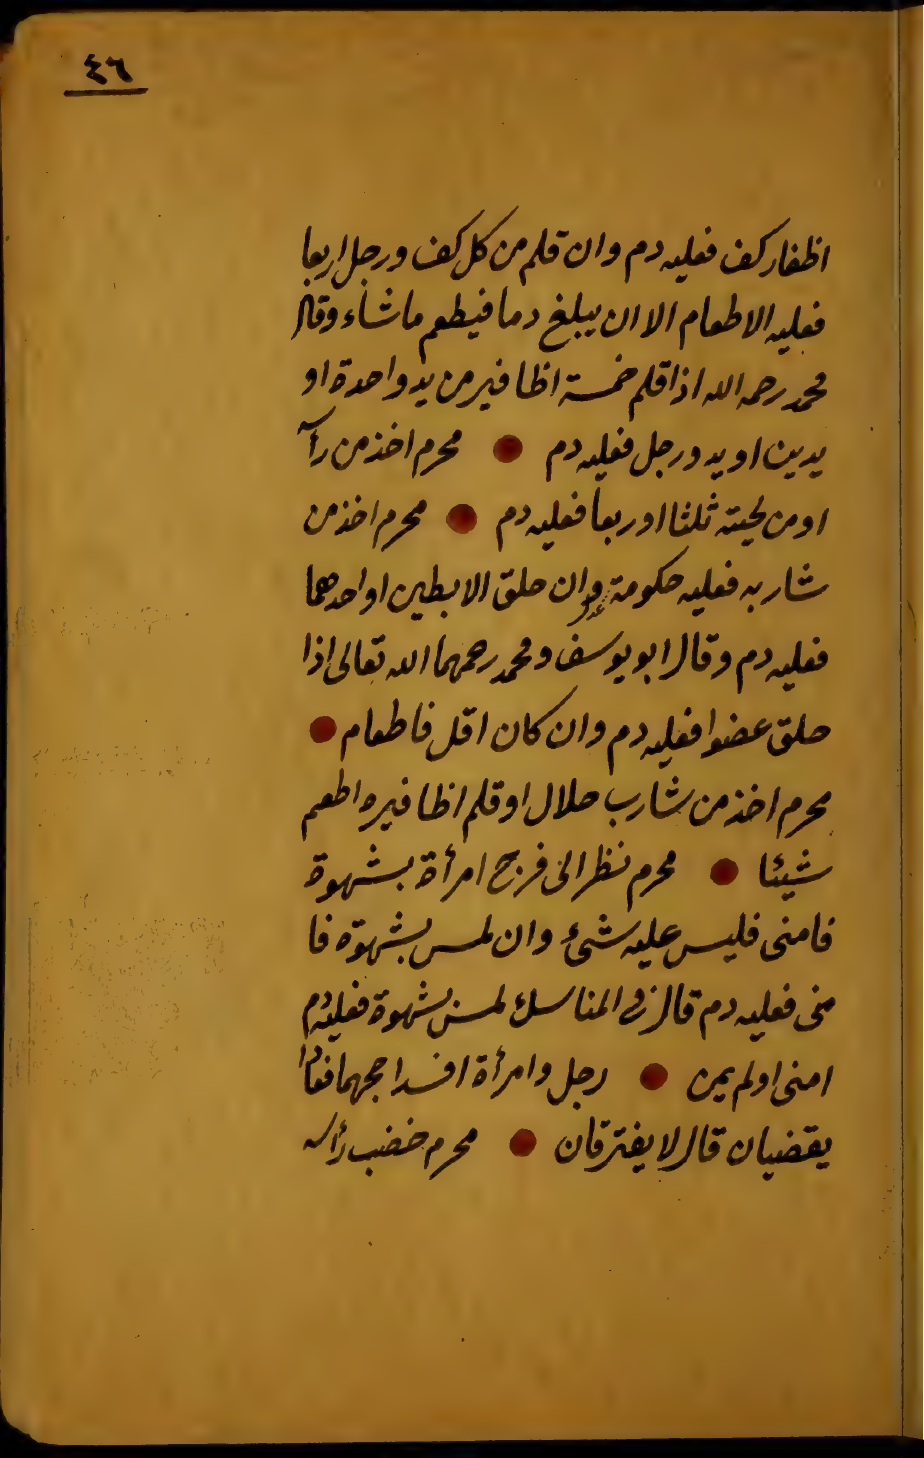 ٤٦
اظفار كف فعليه دم وان قلم من كل كف ورجل اربعا
فعليه الاطعام الا ان يبلغ دما فيطعم ما شاء وقال
محمد رحمه الله اذا قلم خمسة اظافير من يد واحدة او
يدين او يد ورجل فعليه دم محرم اخذ من رأ
او من لحيته ثلثا او ربعا فعليه دم محرم اخذ من
شاربه فعليه حكومة وان حلق الابطين او احدهما
فعليه دم وقال ابو يوسف ومحمد رحمهما الله تعالى اذا
حلق عضوا فعليه دم وان كان اقل فاطعام
محرم اخذ من شارب حلال او قلم اظافيره اطعم
شيئا محرم نظر الى فرج امرأة بشهوة
فامنى فليس عليه شئ وان لمس بشهوة فا
منى فعليه دم قال في المناسك لمس بشهوة فعليه دم
امنى او لم يمن رجل وامرأة افسدا حجهما
يقضيان قال لا يفترقان محرم خضب رأسه